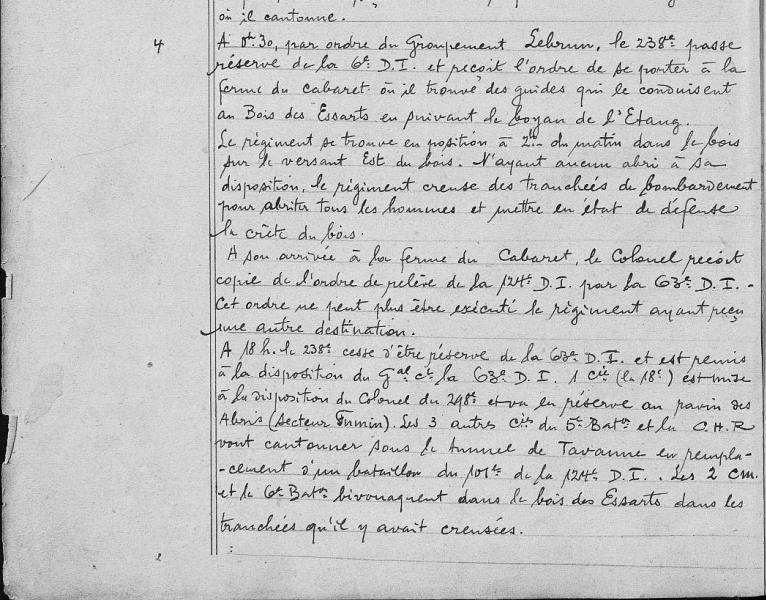 où il cantonne.
4 A 0h.30, par ordre du Groupement Lebrun, le 238e passe
réserve de la 6e D.I. et reçoit l'ordre de se porter à la
ferme du cabaret où il trouve des guides qui le conduisent
au Bois des Essarts en suivant le boyau de l'Etang.
Le régiment se trouve en position à 2h. du matin dans le bois
sur le versant Est du bois. N'ayant aucun abri à sa
disposition, le régiment creuse des tranchées de bombardement
pour abriter tous les hommes et mettre en état de défense
la crête du bois.
A son arrivée à la ferme du Cabaret, le Colonel reçoit
copie de l'ordre de relève de la 124e D.I. par la 63e D.I. -
Cet ordre ne peut plus être exécuté le régiment ayant reçu
une autre destination.
A 18 h. le 238e cesse d'être réserve de la 63e D.I. et est remis
à la disposition du Gal ct la 63e D.I. 1 Cie (la 18e) est mise
à la disposition du Colonel du 298e et va en réserve au ravin des
Abris (Secteur Fumin). Les 3 autres Cies du 5e Baton et la C.H.R
vont cantonner sous le tunnel de Tavanne en rempla-
-cement d'un bataillon du 101e de la 124e D.I.. Les 2 cm.
et le 6e Baton bivouaquent dans le bois des Essarts dans les
tranchées qu'il y avait creusées.